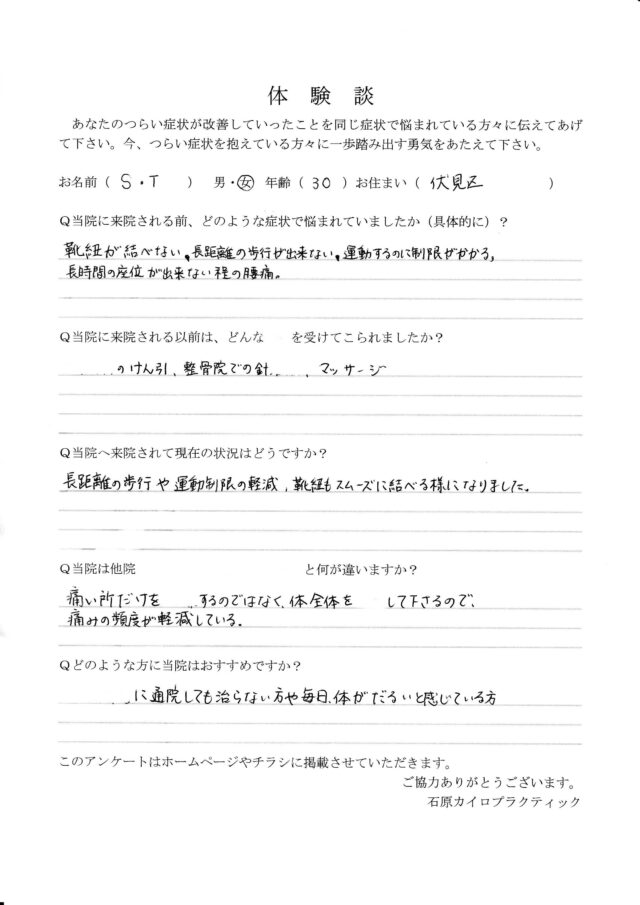 体験談
あなたのつらい症状が改善していったことを同じ症状で悩まれている方々に伝えてあげ
て下さい。今、つらい症状を抱えている方々に一歩踏み出す勇気をあたえて下さい。
お名前（ S・T ） 男・女 年齢（ 30 ）お住まい（ 伏見区 ）
Q当院に来院される前、どのような症状で悩まれていましたか（具体的に）？
靴紐が結べない。長距離の歩行が出来ない。運動するのに制限がかかる。
長時間の座位が出来ない程の腰痛。
Q当院に来院される以前は、どんな を受けてこられましたか？
のけん引、整骨院での針 、マッサージ
Q当院へ来院されて現在の状況はどうですか？
長距離の歩行や運動制限の軽減、靴紐もスムーズに結べる様になりました。
Q当院は他院 と何が違いますか？
痛い所だけを するのではなく、体全体を して下さるので、
痛みの頻度が軽減している。
Qどのような方に当院はおすすめですか？
に通院しても治らない方や毎日、体がだるいと感じている方
このアンケートはホームページやチラシに掲載させていただきます。
ご協力ありがとうございます。
石原カイロプラクティック